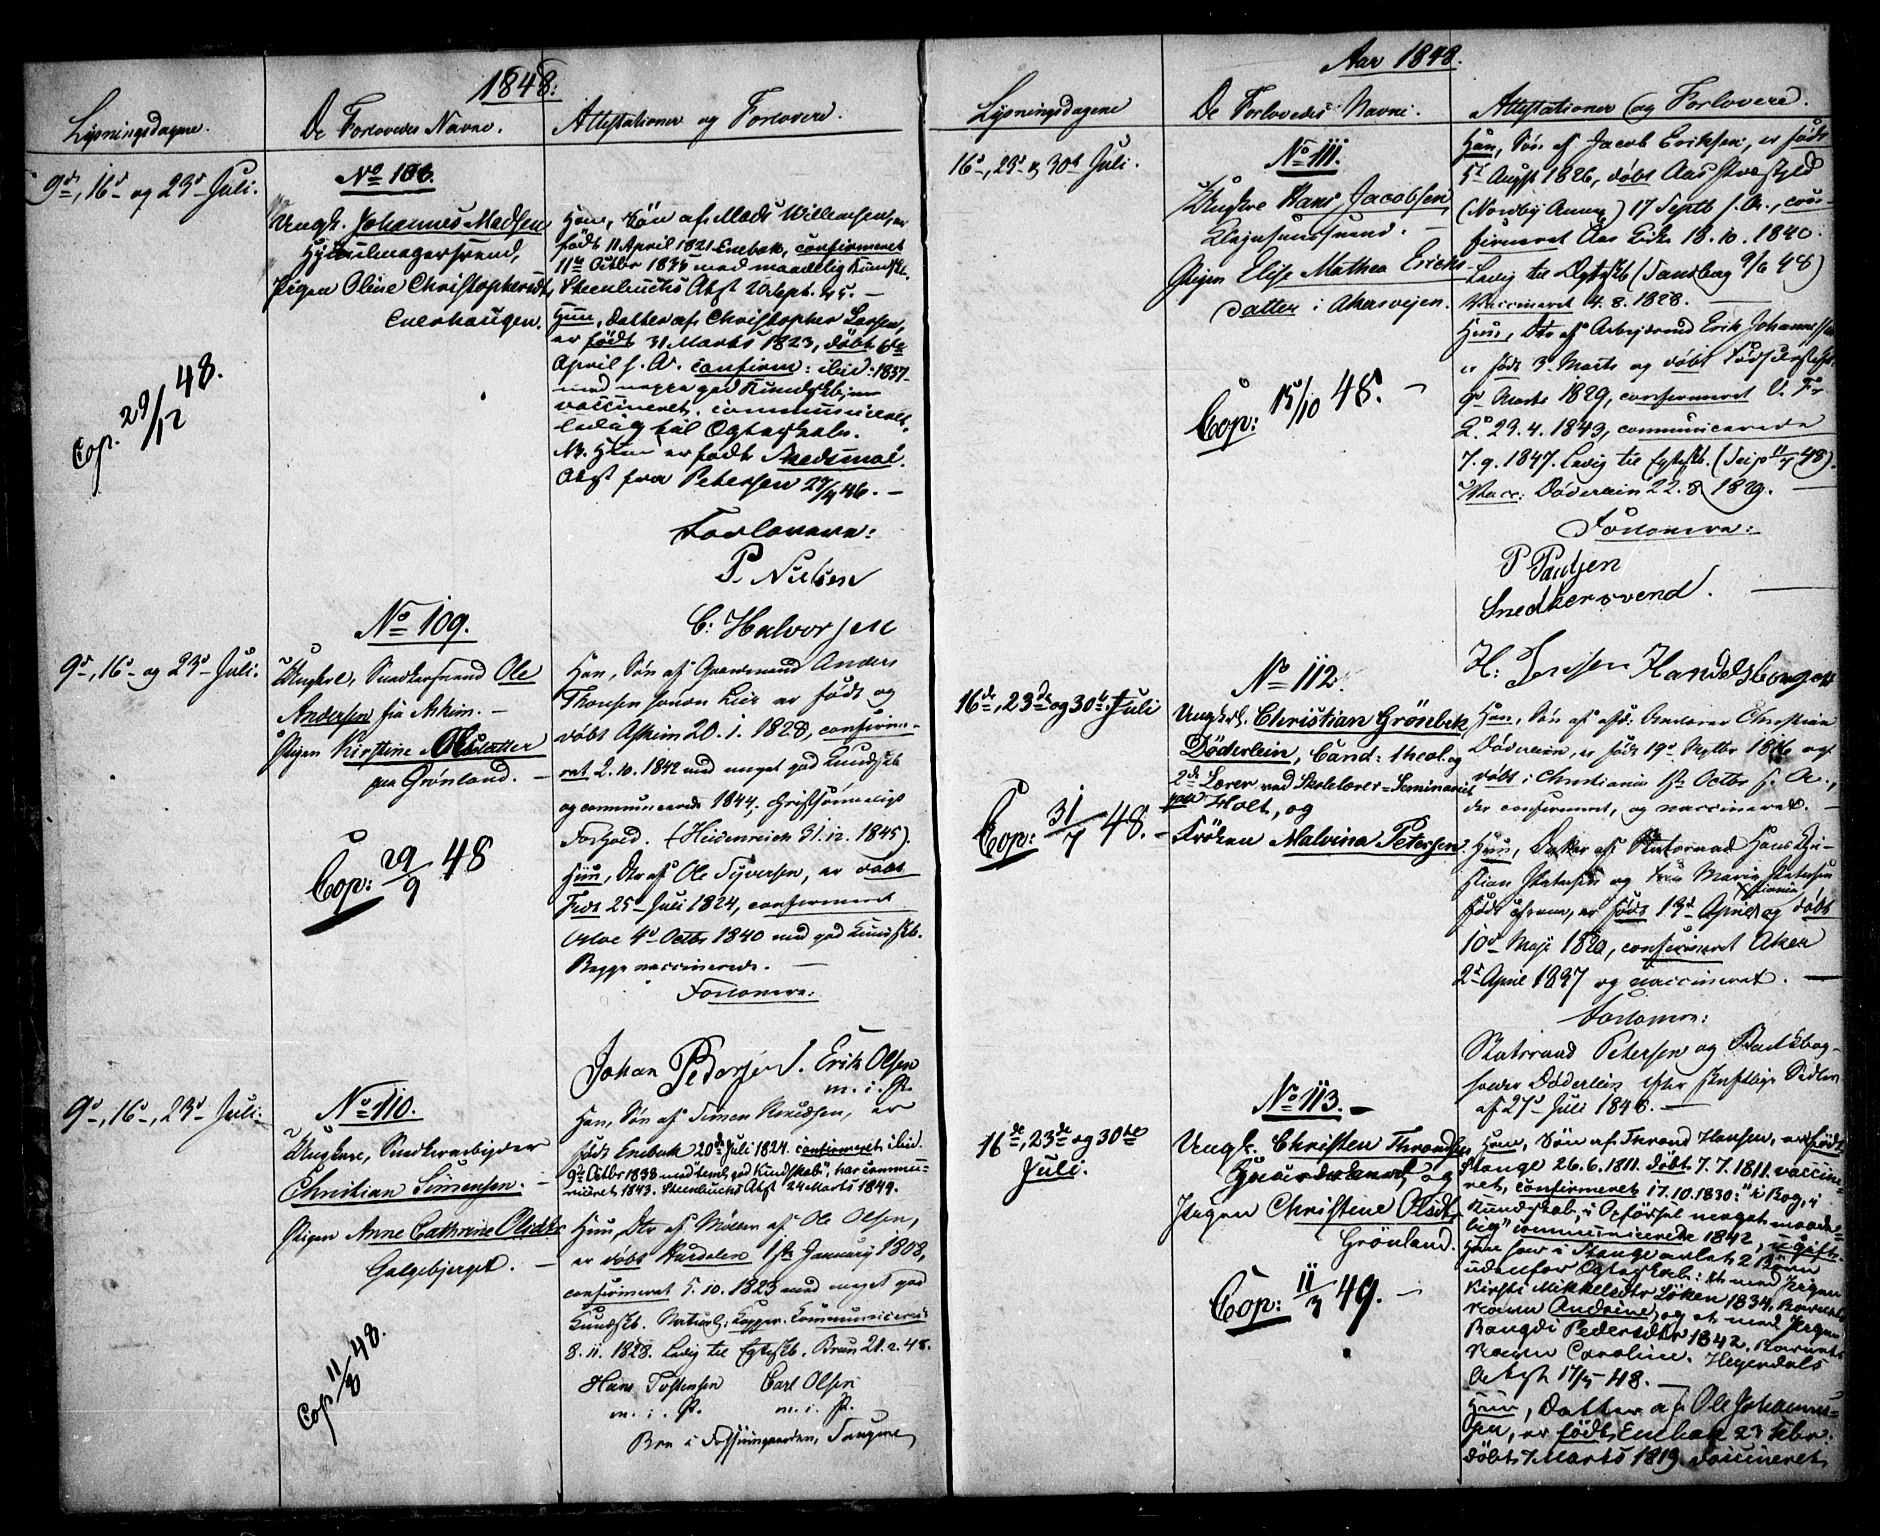 1848.
Lysningsdagene.
De Forlovedes Navne.
Attestationer og Forlovere.
9de, 16d og 23d Juli.
No 108.
Ungk. Johannes Madsen
Pigen Oline Christophersdtr
Enerhaugen.
Han, Søn af Mads Willumsen, er
født 11 April 1821 Enebak, confirmeret
11te Octbr 1835 med maadelig Kundsk.
Steenbuchs Atst 20 Sept. 45. —
Hun, Datter af Christopher Larsen,
er født 31 Marts 1823, døbt 6te
April s. A. confirm: ibid: 1837
med meget god Kundskab,
vaccineret, communiceret,
ledig til Ægteskab.
NB. Hun er født Skedsmoe.
Atst fra Petersen 27/4 46. —
Forlovere:
P. Nielsen
C: Halvorsen
Cop. 29/12 48.
No 109.
9d, 16d og 23d Juli.
Ungkrl, Snedkersvend Ole
Andersen fra Askim. —
Pigen Kirstine Olsdatter
paa Grønland. —
Han, Søn af Gaardmand Anders
er født og
døbt Askim 20. 1. 1828, confirme-
ret 2. 10. 1842 med meget god Kundskb
og communicerede 1844, Christsømmeligt
Forhold. (Heidenreich 31. 12. 1845).
Hun, Dtr af Ole Syversen, er døbt
25d Juli 1824, confirmeret
4d Octbr 1840 med god Kundskb.
Begge vaccinerede. —
Forlovere:
Johan Pedersen. Erik Olsen
m. i. P.
Cop: 29/9 48
No 110.
9d, 16d, 23d Juli.
Ungkarl, Snedkerarbeider
Christian Simensen. —
Pigen Anne Cathrine Olsdtr
Galgebjerget. —
Han, Søn af Simen Knudsen, er
født Enebak 20de Juli 1824. confirmeret ibid.
9de Octbr 1838 med "teml. god Kundskab", har commu-
niceret 1843. Steenbuchs Atst 24 Marts 1849.
Hun, Dtr af Møller af Ole Olsen,
er døbt Hurdalen 1ste January 1808,
confirmeret 5. 10. 1823 med meget god
Kundskb. Naturl: Kopper. Communicerede
8. 11. 1828. Ledig til Egteskb. Bruun 21. 2. 48.
Hans Tostensen Carl Olsen
m. i. P. m. i. P.
Cop 11/8 48.
Aar 1848.
Lysningsdagene
De Forlovedes Navne.
Attestationer og Forlovere.
16d, 23d og 30te Juli.
No 111.
Ungkrl Hans Jacobsen,
Pigen Elise Mathea Eriks-
datter i Akersveien.
Han, Søn af Jacob Eriksen, er født
5te Augst 1826, døbt Aas Præstegjeld
(Nordby Annex) 17 Septb s. A., con-
firmeret Aas Kirke 18. 10. 1840.
Ledig til Egteskb (Tandberg 9/6 48)
Vaccineret 4. 8. 1828. —
Hun, Dtr af Arbeidsmd Erik Johannessen
er født 3 Marts og døbt Fødselsstift.
9d Marts 1829, confirmeret V. Fr.
K. 29. 4. 1843, communicerede
7. 9. 1847. Ledig til Egteskb. (Seip 11/7 48).
Vacc: Døderlein 22. 8. 1829. —
Forlovere:
P Paulsen
Snedkersvend. —
H: Jensen Handelsborger
Cop: 15/10 48. —
No 112.
16de, 23de og 30te Juli
Ungkrl. Christian Grønbek
Døderlein, Cand: theol. og
2de Lærer ved Skolelærer-Seminariet
paa Holt, og
Frøken Malvina Petersen.
Han, Søn af afd: Andorer Christian
Døderlein, er født 19d Septbr 1816 og
døbt i Christiania 1ste Octbr s. A.,
der confirmeret, og vaccineret. —
Hun, Datter af Statsraad Hans Chri-
stian Petersen og Fru Maria Petersen
født er født 13de April og døbt
10d Maji 1820, confirmeret Aker
2d April 1837 og vaccineret. —
Forlovere:
Statsraad Petersen og Bankbog-
holder Døderlein efter skriftlige Sedler
af 27d Juli 1848. —
Cop: 31/7 48. —
No 113. —
16de, 23de og 30te
Juli.
Ungk. Christen Throndsen
og
Pigen Christine Olsdtr
Grønland.
Han, Søn af Thrond Hansen, er født
Stange 26. 6. 1811. døbt 7. 7. 1811. vaccine-
ret, confirmeret 17. 10. 1830: "i Bog, i
Kundskab, i Opførsel meget maade-
lig" communicerede 1842, ugift.
Han har i Stange avlet 2 Børn
udenfor Ægteskab: et med Pigen
Kirsti Mikkelsdtr Løken 1834. Barnets
Navn Andrine, og et med Pigen
Rangdi Pedersdtr 1842. Barnets
Navn Caroline. Heyerdals
Attst 17/5 48. —
Hun, Datter af Ole Johannes-
sen, er født Enebak 23 Febr.
døbt 7 Marts 1819 vaccineret,
Cop: 11/3 49. —